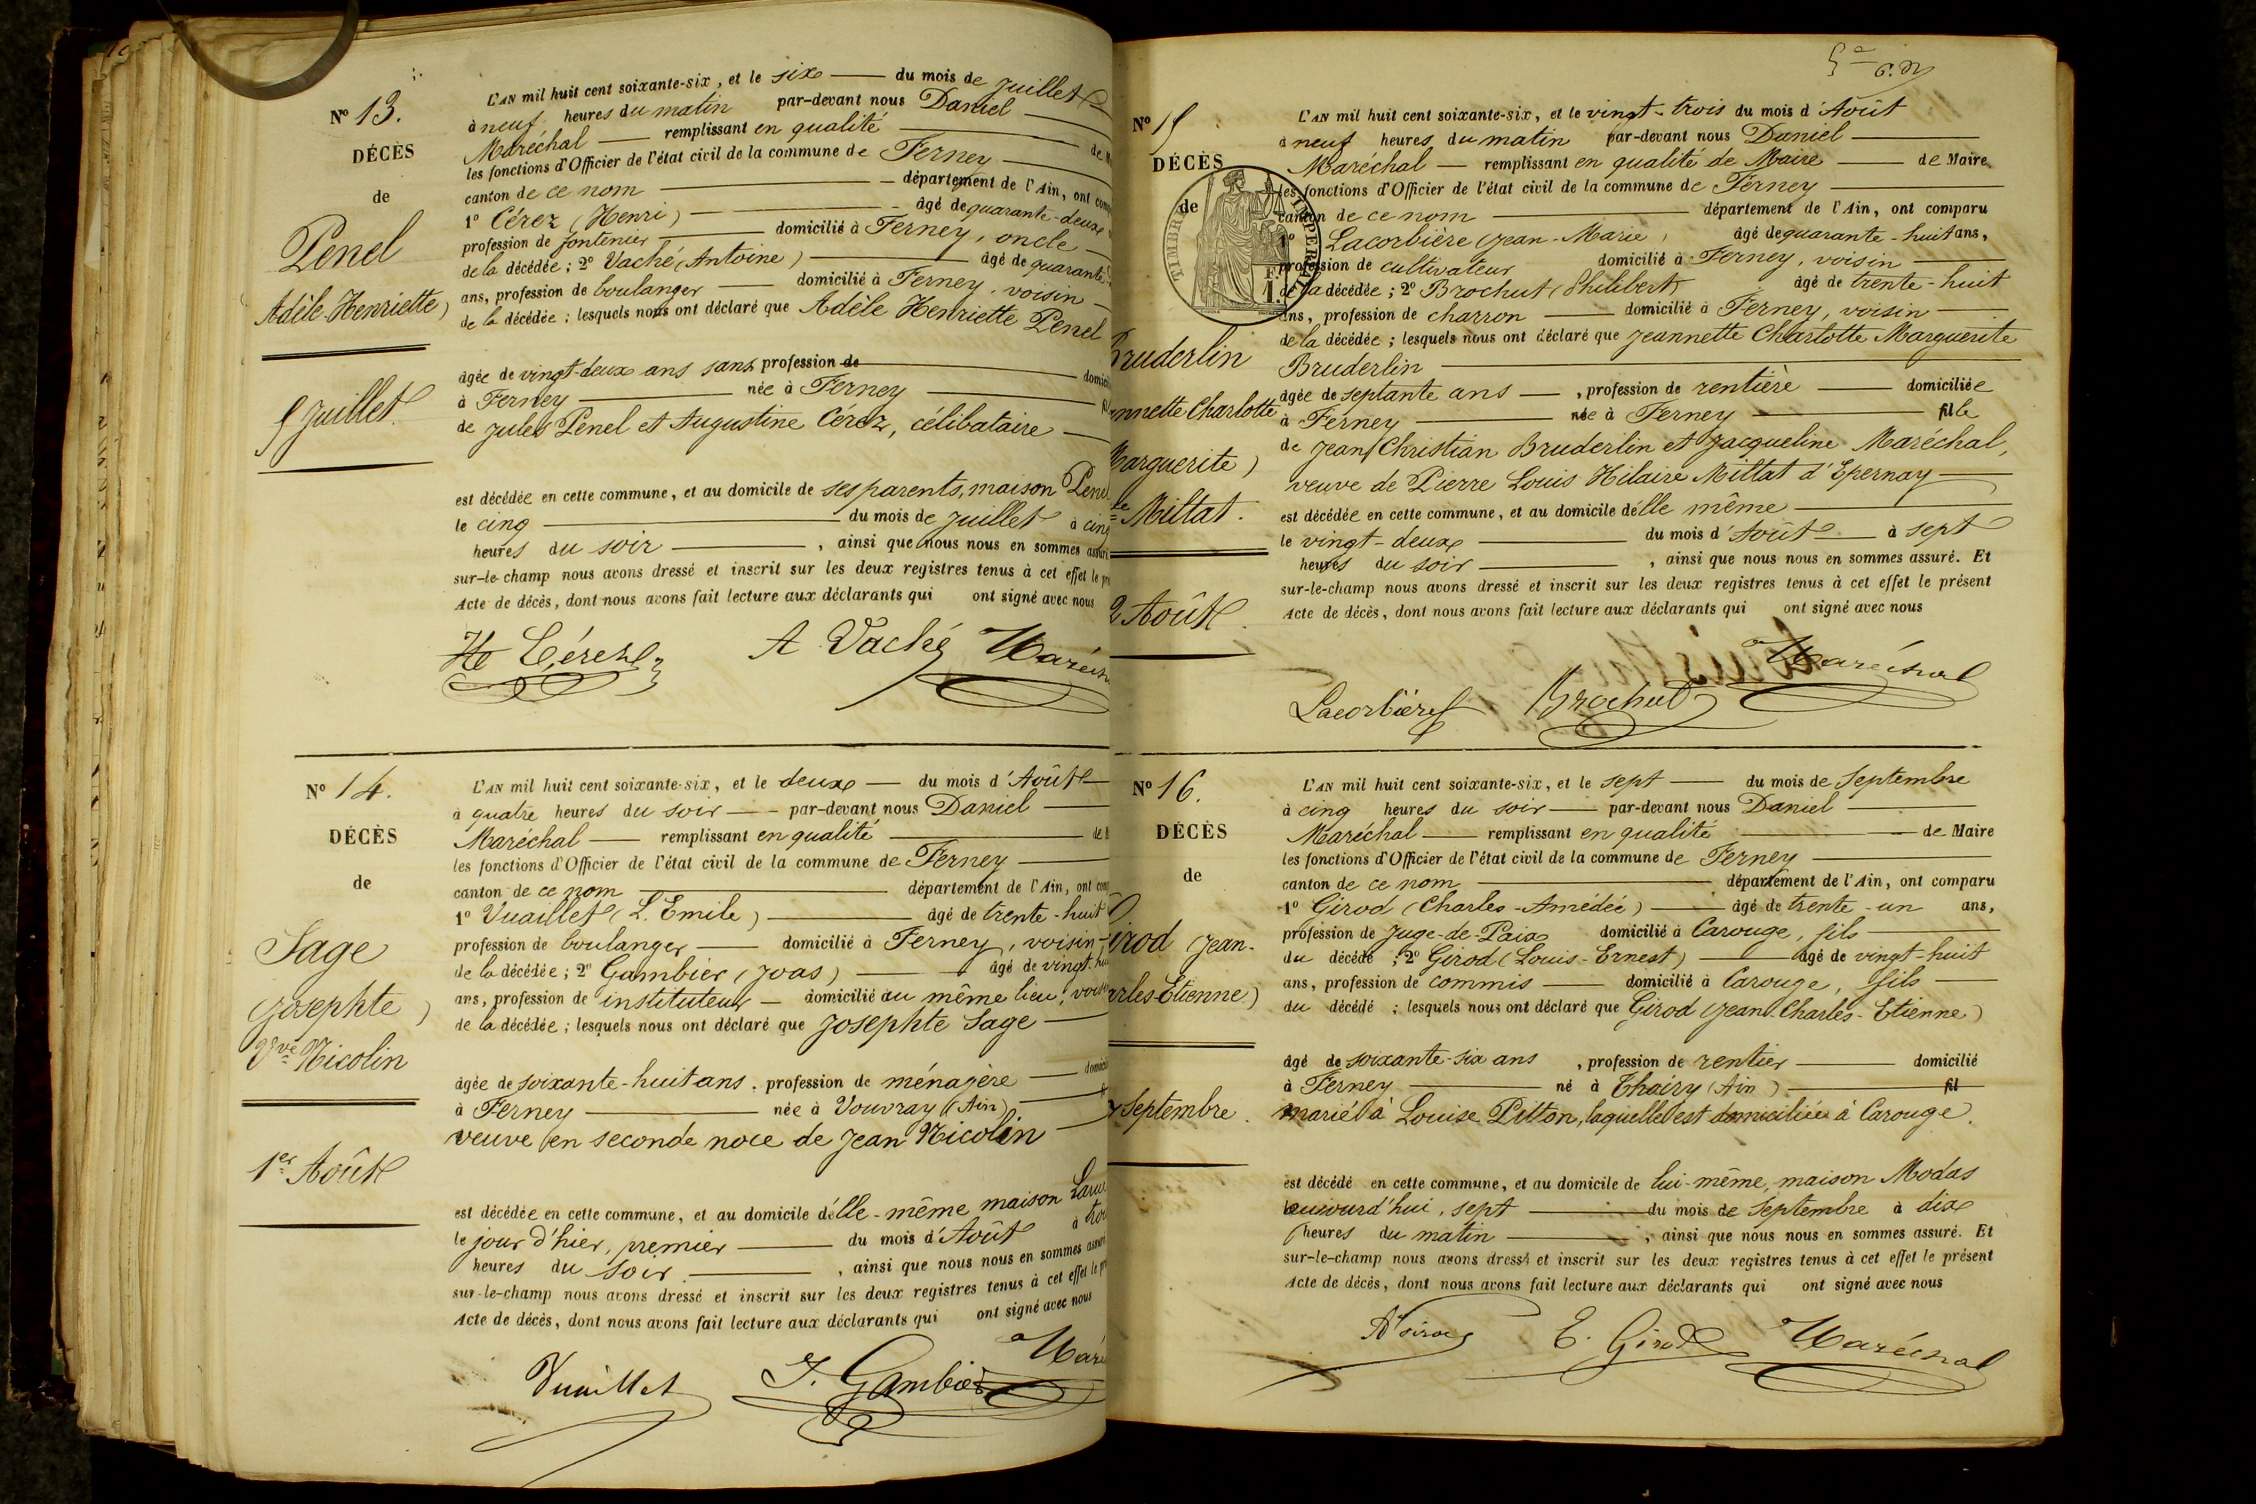 Nº 13.
DÉCÈS
de
Penel
Adèle-Henriette)
5 Juillet.
L'AN mil huit cent soixante-six, et le six du mois de Juillet
à neuf heures du matin par-devant nous Daniel
Maréchal remplissant en qualité de
les fonctions d'Officier de l'état civil de la commune de Ferney
canton de ce nom département de l'Ain, ont
1º Cérez (Henri) âgé de quarante-deux
profession de fontenier domicilié à Ferney, oncle
de la décédée ; 2º Vaché (Antoine) âgé de quarante
ans, profession de boulanger domicilié à Ferney, voisin
de la décédée ; lesquels nous ont déclaré que Adèle Henriette Penel
âgée de vingt-deux ans sans profession de
à Ferney née à Ferney
de Jules Penel et Augustine Cérez, célibataire
est décédée en cette commune, et au domicile de ses parents, maison Penel
le cinq du mois de Juillet à cinq
heures du soir , ainsi que nous nous en sommes
sur-le-champ nous avons dressé et inscrit sur les deux registres tenus à cet effet le
Acte de décès, dont nous avons fait lecture aux déclarants qui ont signé avec nous
He Cérez A Vaché
Nº 14.
DÉCÈS
de
Sage
(Josephte)
Vve Nicolin
1er Août
L'AN mil huit cent soixante-six, et le deux du mois d'Août
à quatre heures du soir par-devant nous Daniel
Maréchal remplissant en qualité
les fonctions d'Officier de l'état civil de la commune de Ferney
canton de ce nom département de l'Ain, ont
1º Vuaillet (L. Emile) âgé de trente-huit
profession de boulanger domicilié à Ferney, voisin
de la décédée ; 2º Gambier (Joas) âgé de vingt-
ans, profession de instituteur domicilié au même lieu,
de la décédée ; lesquels nous ont déclaré que Josephte Sage
âgée de soixante-huit ans, profession de ménagère
à Ferney née à Vouvray (Ain)
veuve en seconde noce de Jean Nicolin
est décédée en cette commune, et au domicile d'elle-même maison
le jour d'hier, premier du mois d'Août à
heures du soir , ainsi que nous nous en sommes
sur-le-champ nous avons dressé et inscrit sur les deux registres tenus à cet effet le
Acte de décès, dont nous avons fait lecture aux déclarants qui ont signé avec nous
Vuaillet J. Gambier
Nº 15
DÉCÈS
de
TIMBRE IMPERIAL
Bruderlin
Charlotte
Marguerite)
Miltat.
Août
L'AN mil huit cent soixante-six, et le vingt-trois du mois d'Août
à neuf heures du matin par-devant nous Daniel
Maréchal remplissant en qualité de Maire de Maire
les fonctions d'Officier de l'état civil de la commune de Ferney
canton de ce nom département de l'Ain, ont comparu
1º Lacorbière (Jean-Marie) âgé de quarante-huit ans,
profession de cultivateur domicilié à Ferney, voisin
de la décédée ; 2º Brochut (Philibert) âgé de trente-huit
ans, profession de charron domicilié à Ferney, voisin
de la décédée ; lesquels nous ont déclaré que Jeannette Charlotte Marguerite
Bruderlin
âgée de septante ans , profession de rentière domiciliée
à Ferney née à Ferney fille
de Jean Christian Bruderlin et Jacqueline Maréchal,
veuve de Pierre Louis Hilaire Miltat d'Epernay
est décédée en cette commune, et au domicile d'elle même
le vingt-deux du mois d'Août à sept
heures du soir , ainsi que nous nous en sommes assuré. Et
sur-le-champ nous avons dressé et inscrit sur les deux registres tenus à cet effet le présent
Acte de décès, dont nous avons fait lecture aux déclarants qui ont signé avec nous
Maréchal
Lacorbière Brochut
Nº 16.
DÉCÈS
de
Girod Jean-
Etienne)
7 Septembre.
L'AN mil huit cent soixante-six, et le sept du mois de Septembre
à cinq heures du soir par-devant nous Daniel
Maréchal remplissant en qualité de Maire
les fonctions d'Officier de l'état civil de la commune de Ferney
canton de ce nom département de l'Ain, ont comparu
1º Girod (Charles-Amédée) âgé de trente-un ans,
profession de Juge-de-Paix domicilié à Carouge, fils
du décédé ; 2º Girod (Louis-Ernest) âgé de vingt-huit
ans, profession de commis domicilié à Carouge, fils
du décédé ; lesquels nous ont déclaré que Girod (Jean Charles-Etienne)
âgé de soixante-six ans , profession de rentier domicilié
à Ferney né à Thoiry (Ain) fil
marié à Louise Pitton, laquelle est domiciliée à Carouge.
est décédé en cette commune, et au domicile de lui-même, maison Modas
aujourd'hui, sept du mois de Septembre à dix
heures du matin , ainsi que nous nous en sommes assuré. Et
sur-le-champ nous avons dressé et inscrit sur les deux registres tenus à cet effet le présent
Acte de décès, dont nous avons fait lecture aux déclarants qui ont signé avec nous
E. Girod Maréchal